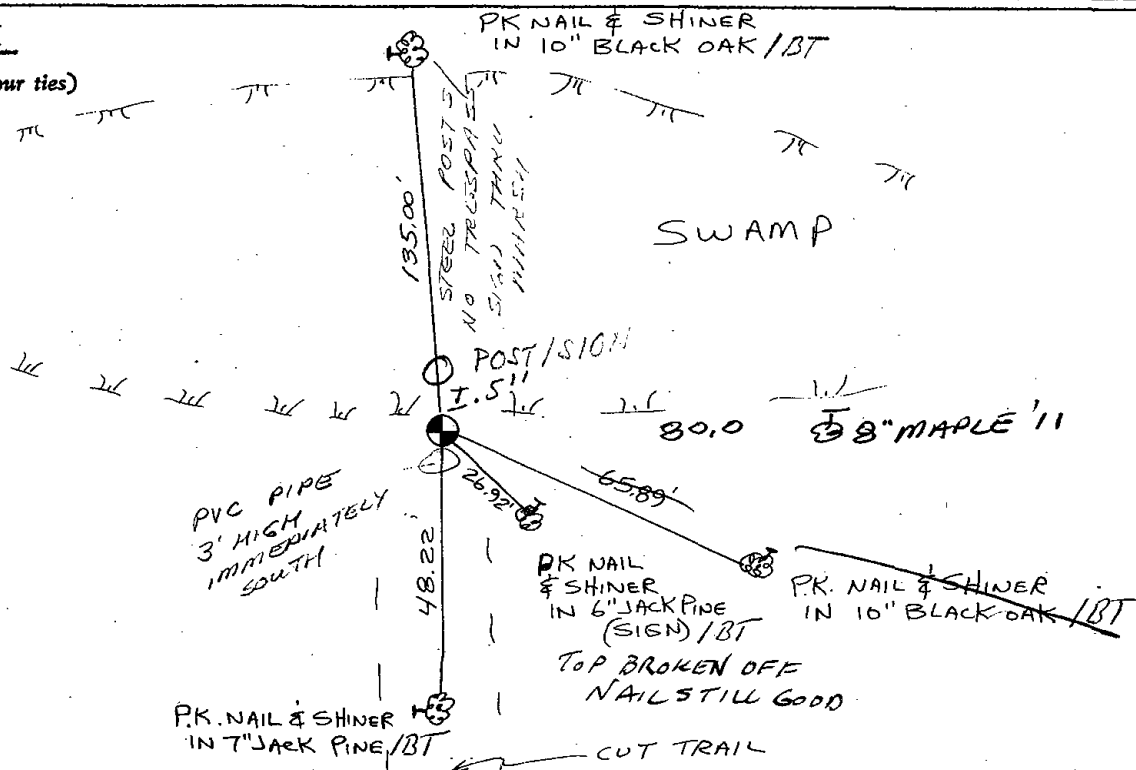 PK NAIL & SHINER
IN 10" BLACK OAK / BT
our ties)
135.00'
STEEL POSTS
NO TRESPASS
SIGN THRU
MARSH
SWAMP
POST/SIGN
I.S"
80.0
8" MAPLE '11
PVC PIPE
3' HIGH
IMMEDIATELY
SOUTH
26.92'
65.89'
48.22
PK NAIL
& SHINER
IN 6" JACK PINE
(SIGN) / BT
TOP BROKEN OFF
NAIL STILL GOOD
P.K. NAIL & SHINER
IN 10" BLACK OAK / BT
P.K. NAIL & SHINER
IN 7" JACK PINE / BT
CUT TRAIL